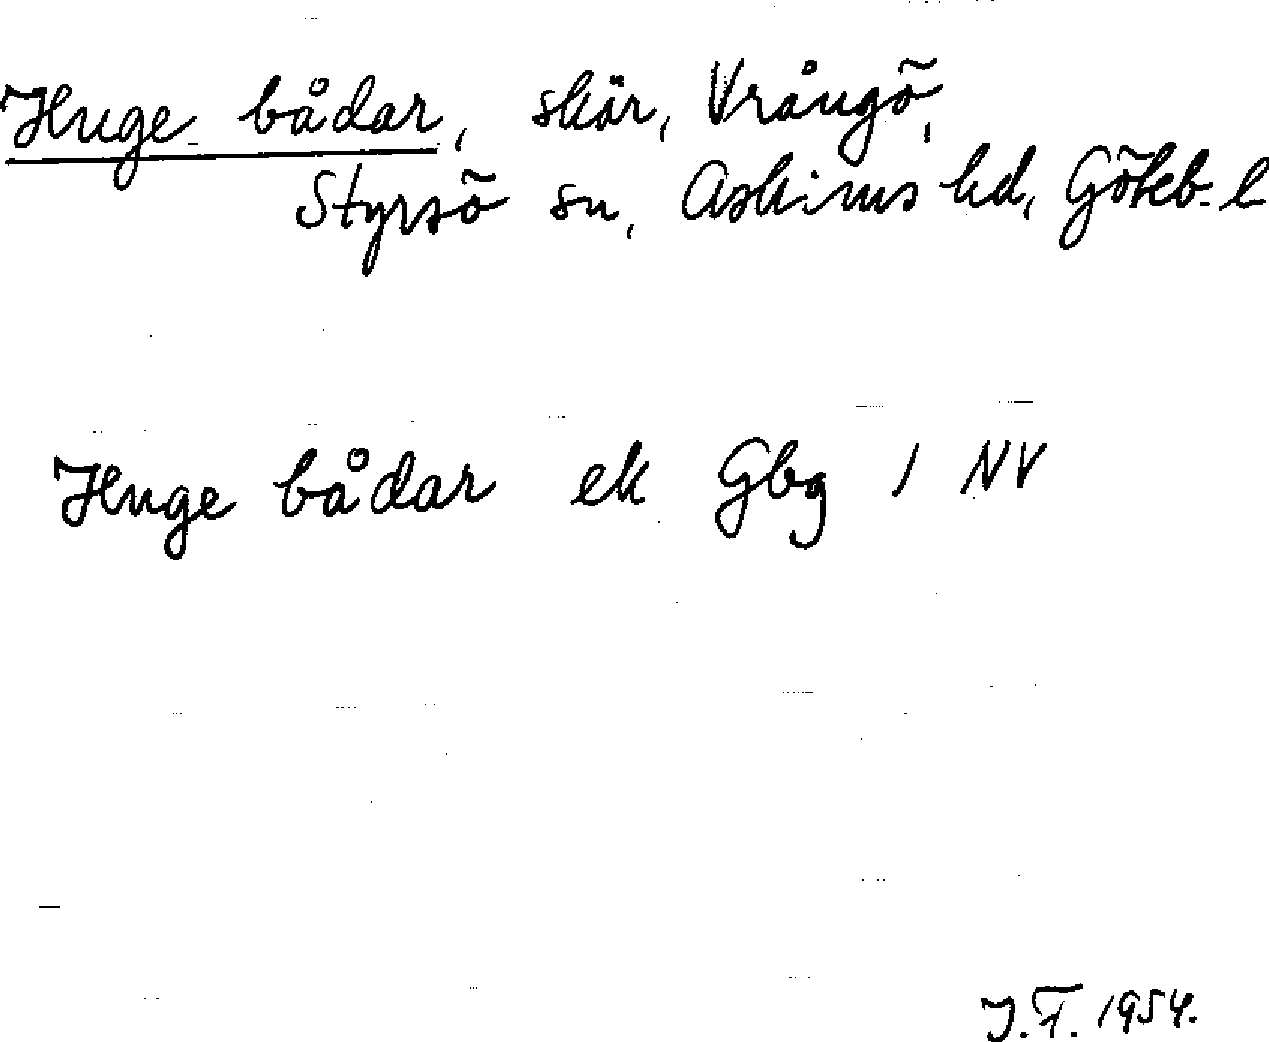 Huge bådar, skär, Vrångö,
Styrsö sn, Askims hd, Göteb. l
Huge bådar ek Gbg 1 NV
J.F. 1954.